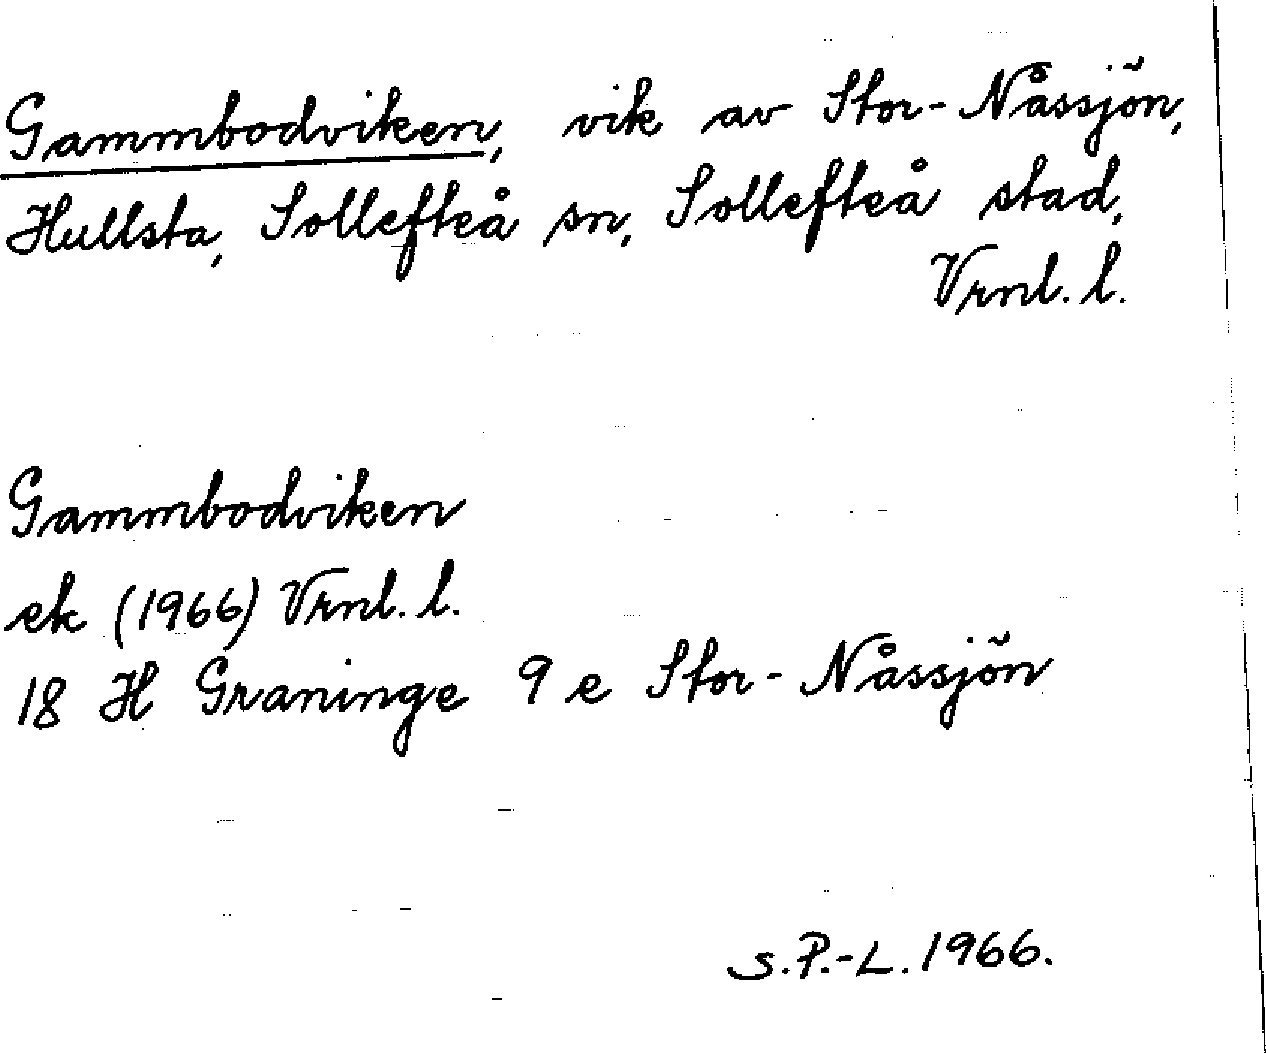 Gammbodviken, vik av Stor-Nåssjön,
Hullsta, Sollefteå sn, Sollefteå stad,
Vrnl. l.
Gammbodviken
ek (1966) Vrnl. l.
18 H Graninge 9 e Stor-Nåssjön
S.P.-L. 1966.